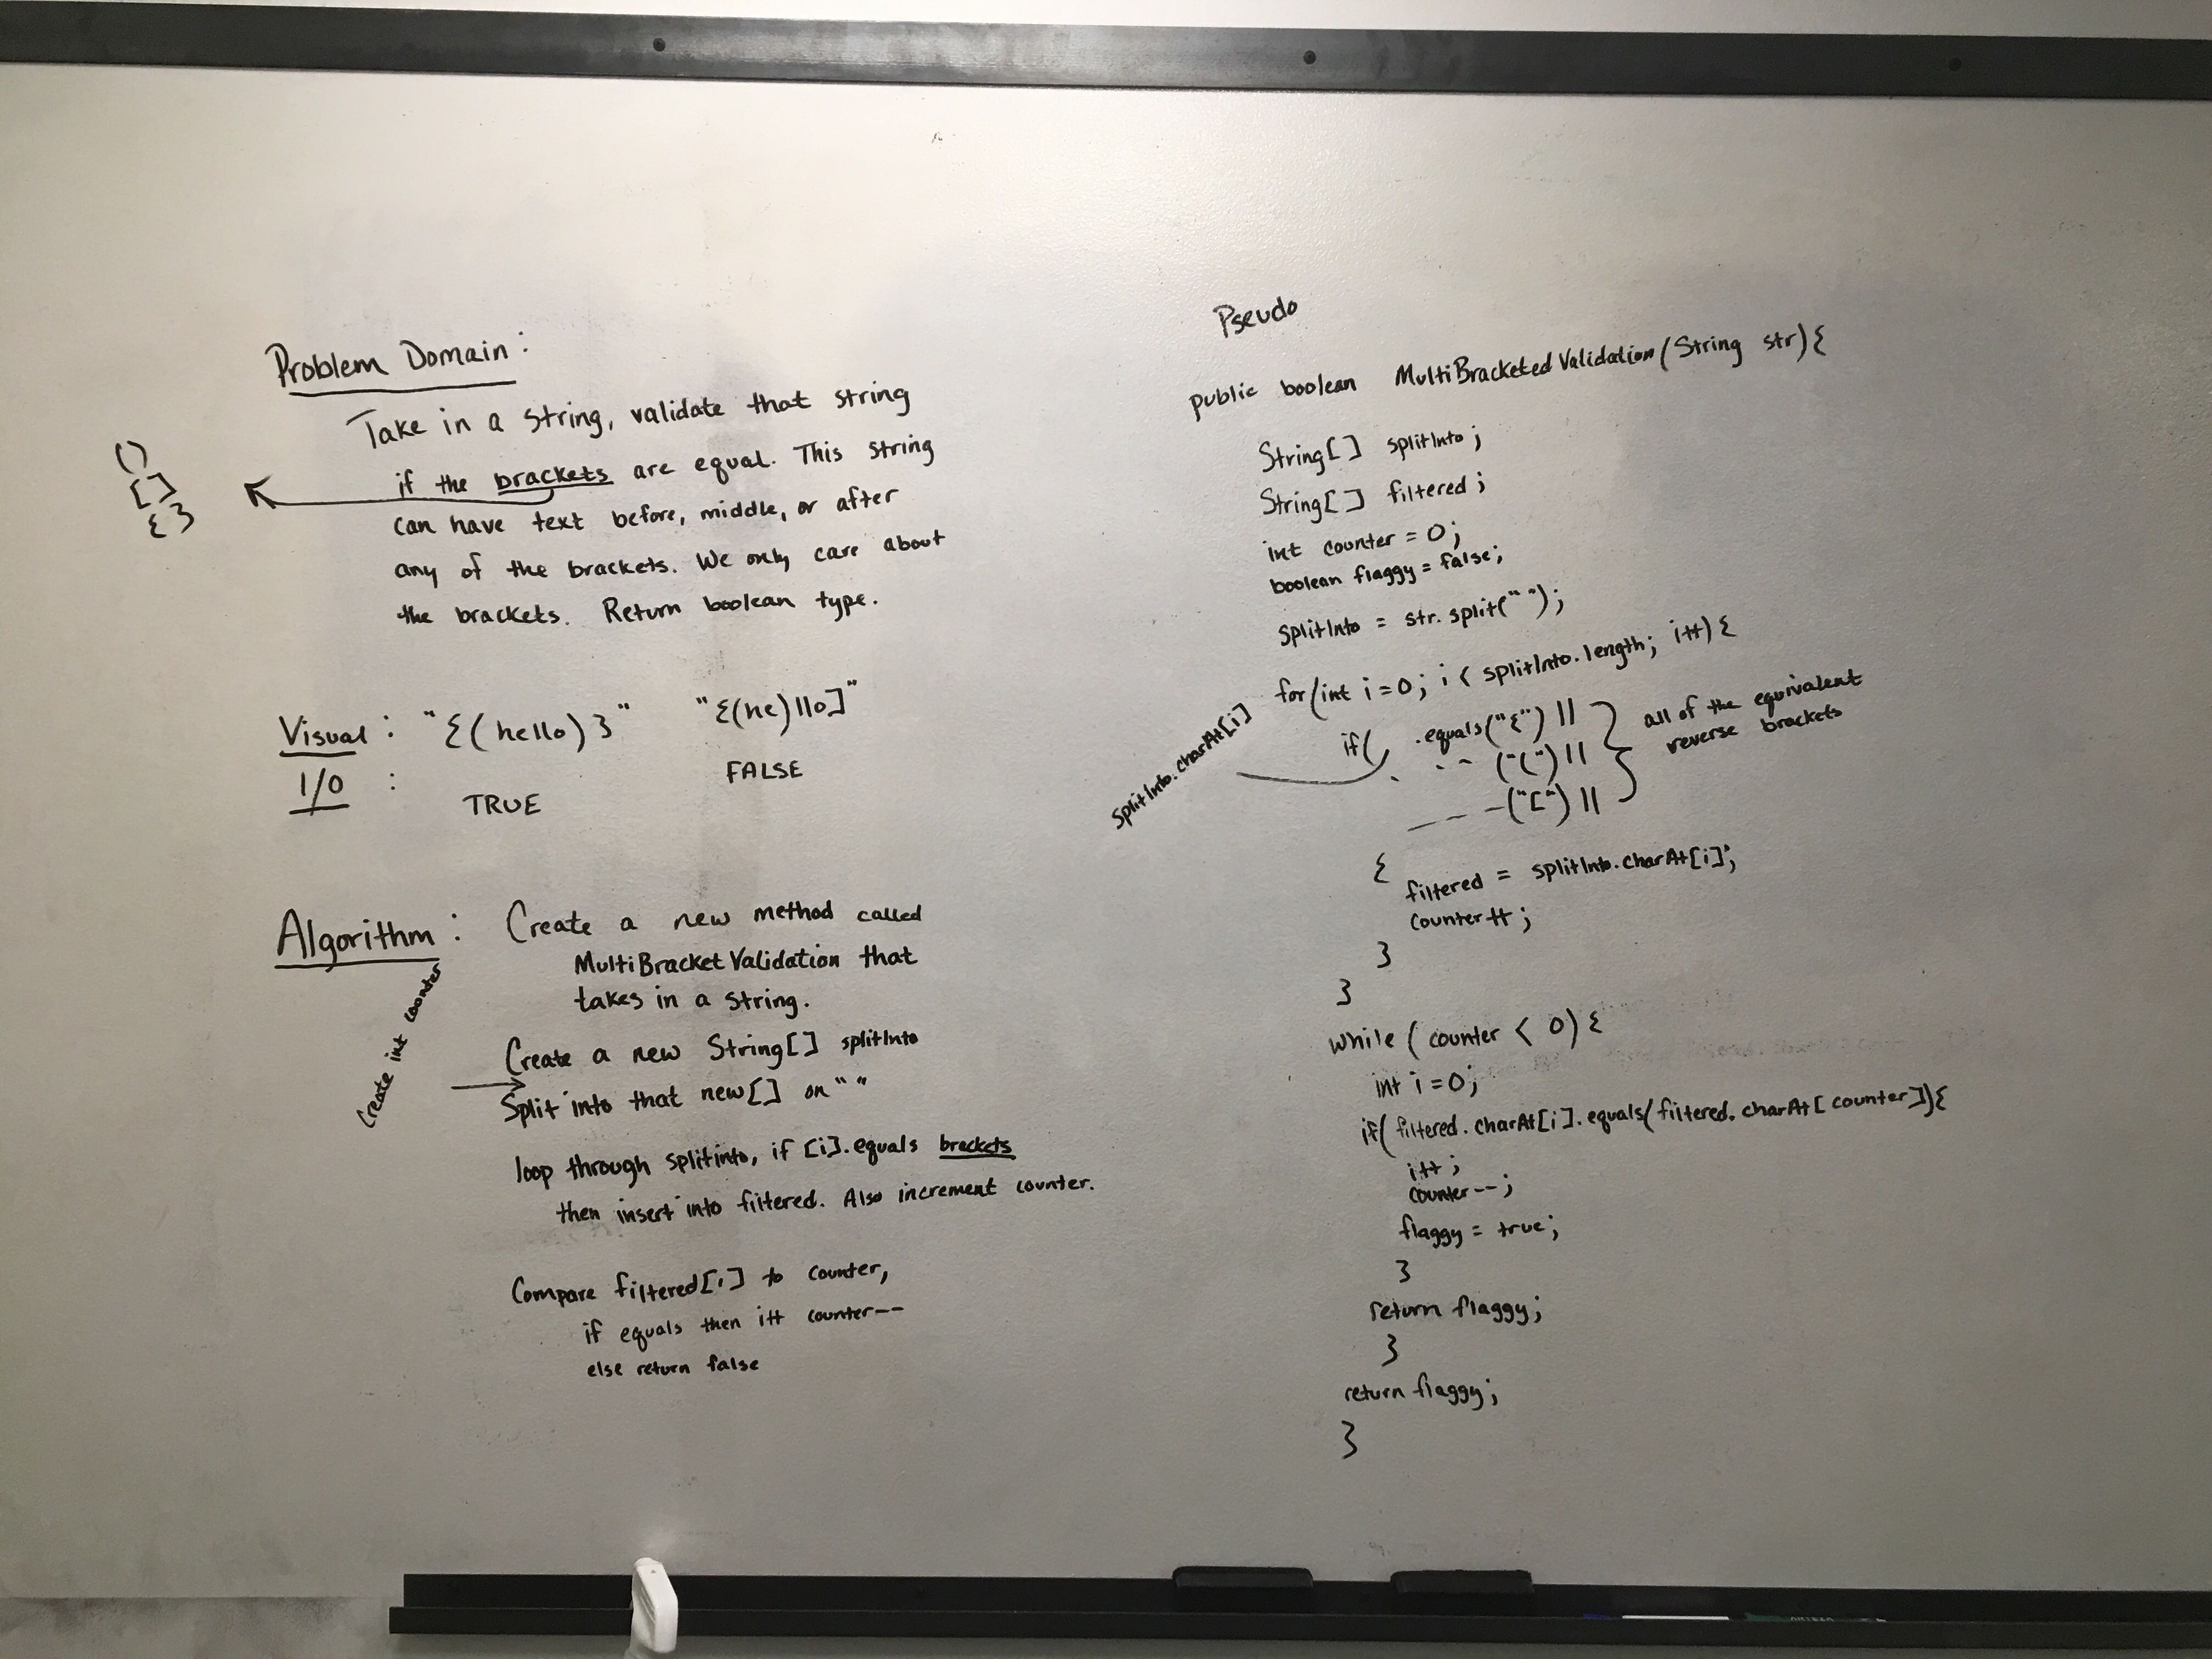 Problem Domain:
Take in a string, validate that string
if the brackets are equal. This string
can have text before, middle, or after
any of the brackets. We only care about
the brackets. Return boolean type.
()
[]
{}
Visual: "{(hello)}" "{(he)llo]"
I/O: TRUE FALSE
Algorithm: Create a new method called
MultiBracketValidation that
takes in a string.
Create int counter
Create a new String[] splitInto
Split into that new[] on " "
loop through splitinto, if [i].equals brackets
then insert into filtered. Also increment counter.
Compare filtered[i] to counter,
if equals then i++ counter--
else return false
Pseudo
public boolean MultiBracketedValidation(String str){
String[] splitInto;
String[] filtered;
int counter = 0;
boolean flaggy = false;
splitInto = str.split(" ");
for(int i=0; i < splitInto.length; i++){
splitInto.charAt[i]
if( .equals("{") ||
. -- ("(") ||
-- -("[") ||
all of the equivalent
reverse brackets
{
filtered = splitInto.charAt[i];
counter++;
}
}
while (counter < 0){
int i=0;
if( filtered.charAt[i].equals(filtered.charAt[counter]){
i++;
counter--;
flaggy = true;
}
return flaggy;
}
return flaggy;
}